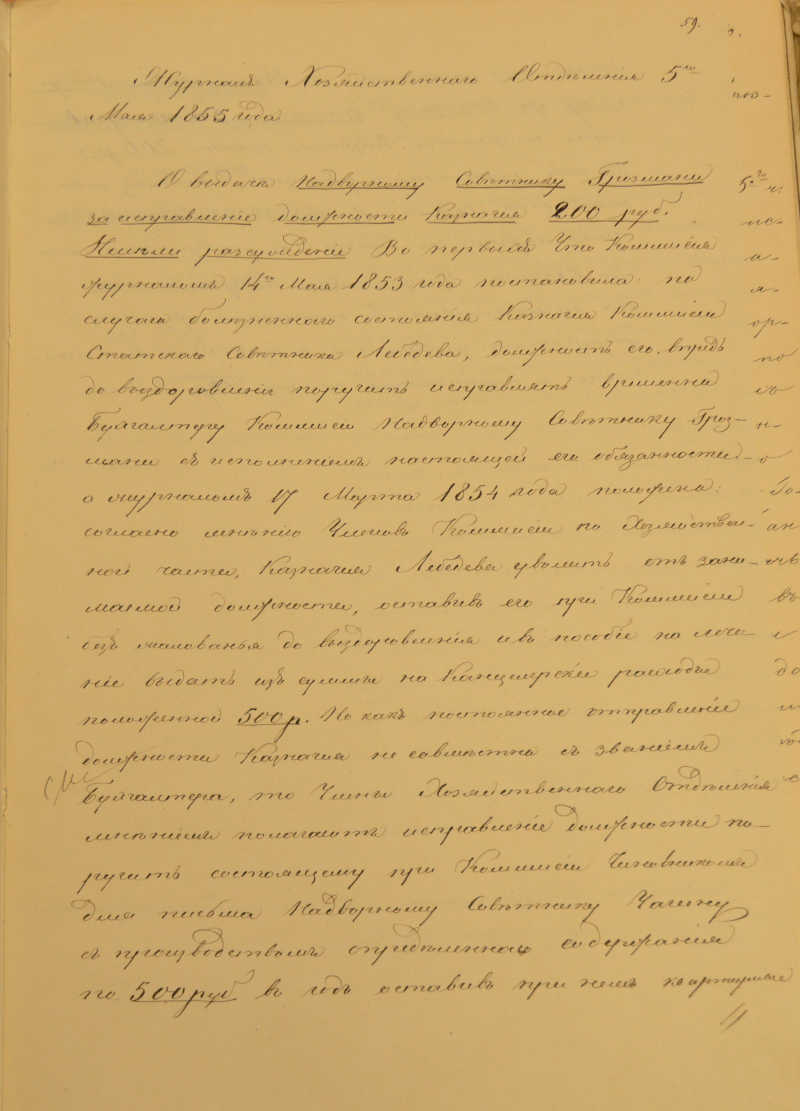 59.
Журналъ Хозяйственнаго Отдѣленія 5го
Мая 1855 года
О выдачѣ Надворному Совѣтнику Грозмани
за исправленіе должности Казначея 200 руб.
Имѣли разсужденіе Во первыхъ Что Коммисія
журналомъ 14го Мая 1853 года постановила: по
случаю болѣзненнаго состоянія Казначея Коммисіи
Статскаго Совѣтника Лебедева, должность его, впредь
до выздоровленія поручить исправлять временно
Бухгалтеру Коммисіи Надворному Совѣтнику Гроз-
мани съ исполненіемъ настоящей его обязанности
а журналомъ 17 Марта 1854 года положено:
согласно мнѣнію Членовъ Коммисіи по Хозяйствен-
ной части, Казначея Лебедева уволить отъ зани-
маемой должности, оставивъ его при Коммисіи
безъ жалованья до выздоровленія и въ пособіе на лече-
ніе выдать изъ суммы на Канцелярскіе расходы
положенной 500 р. Но какъ постоянное отправленіе
должности Казначея не совмѣстно съ званіемъ
Бухгалтера, то Члены Хозяйственнаго Отдѣленія
мнѣніемъ полагаютъ исправленіе должности по-
ручить состоящему при Коммисіи Чиновникомъ
для письма Надворному Совѣтнику
съ производствомъ опредѣленнаго содержанія
по 500 руб. въ годъ оставивъ при немъ квартирные